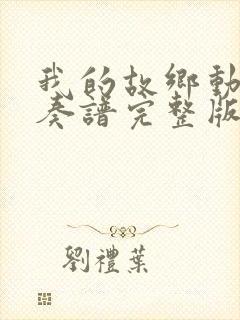 我的故鄉動
奏譜完整版
劉禮葉